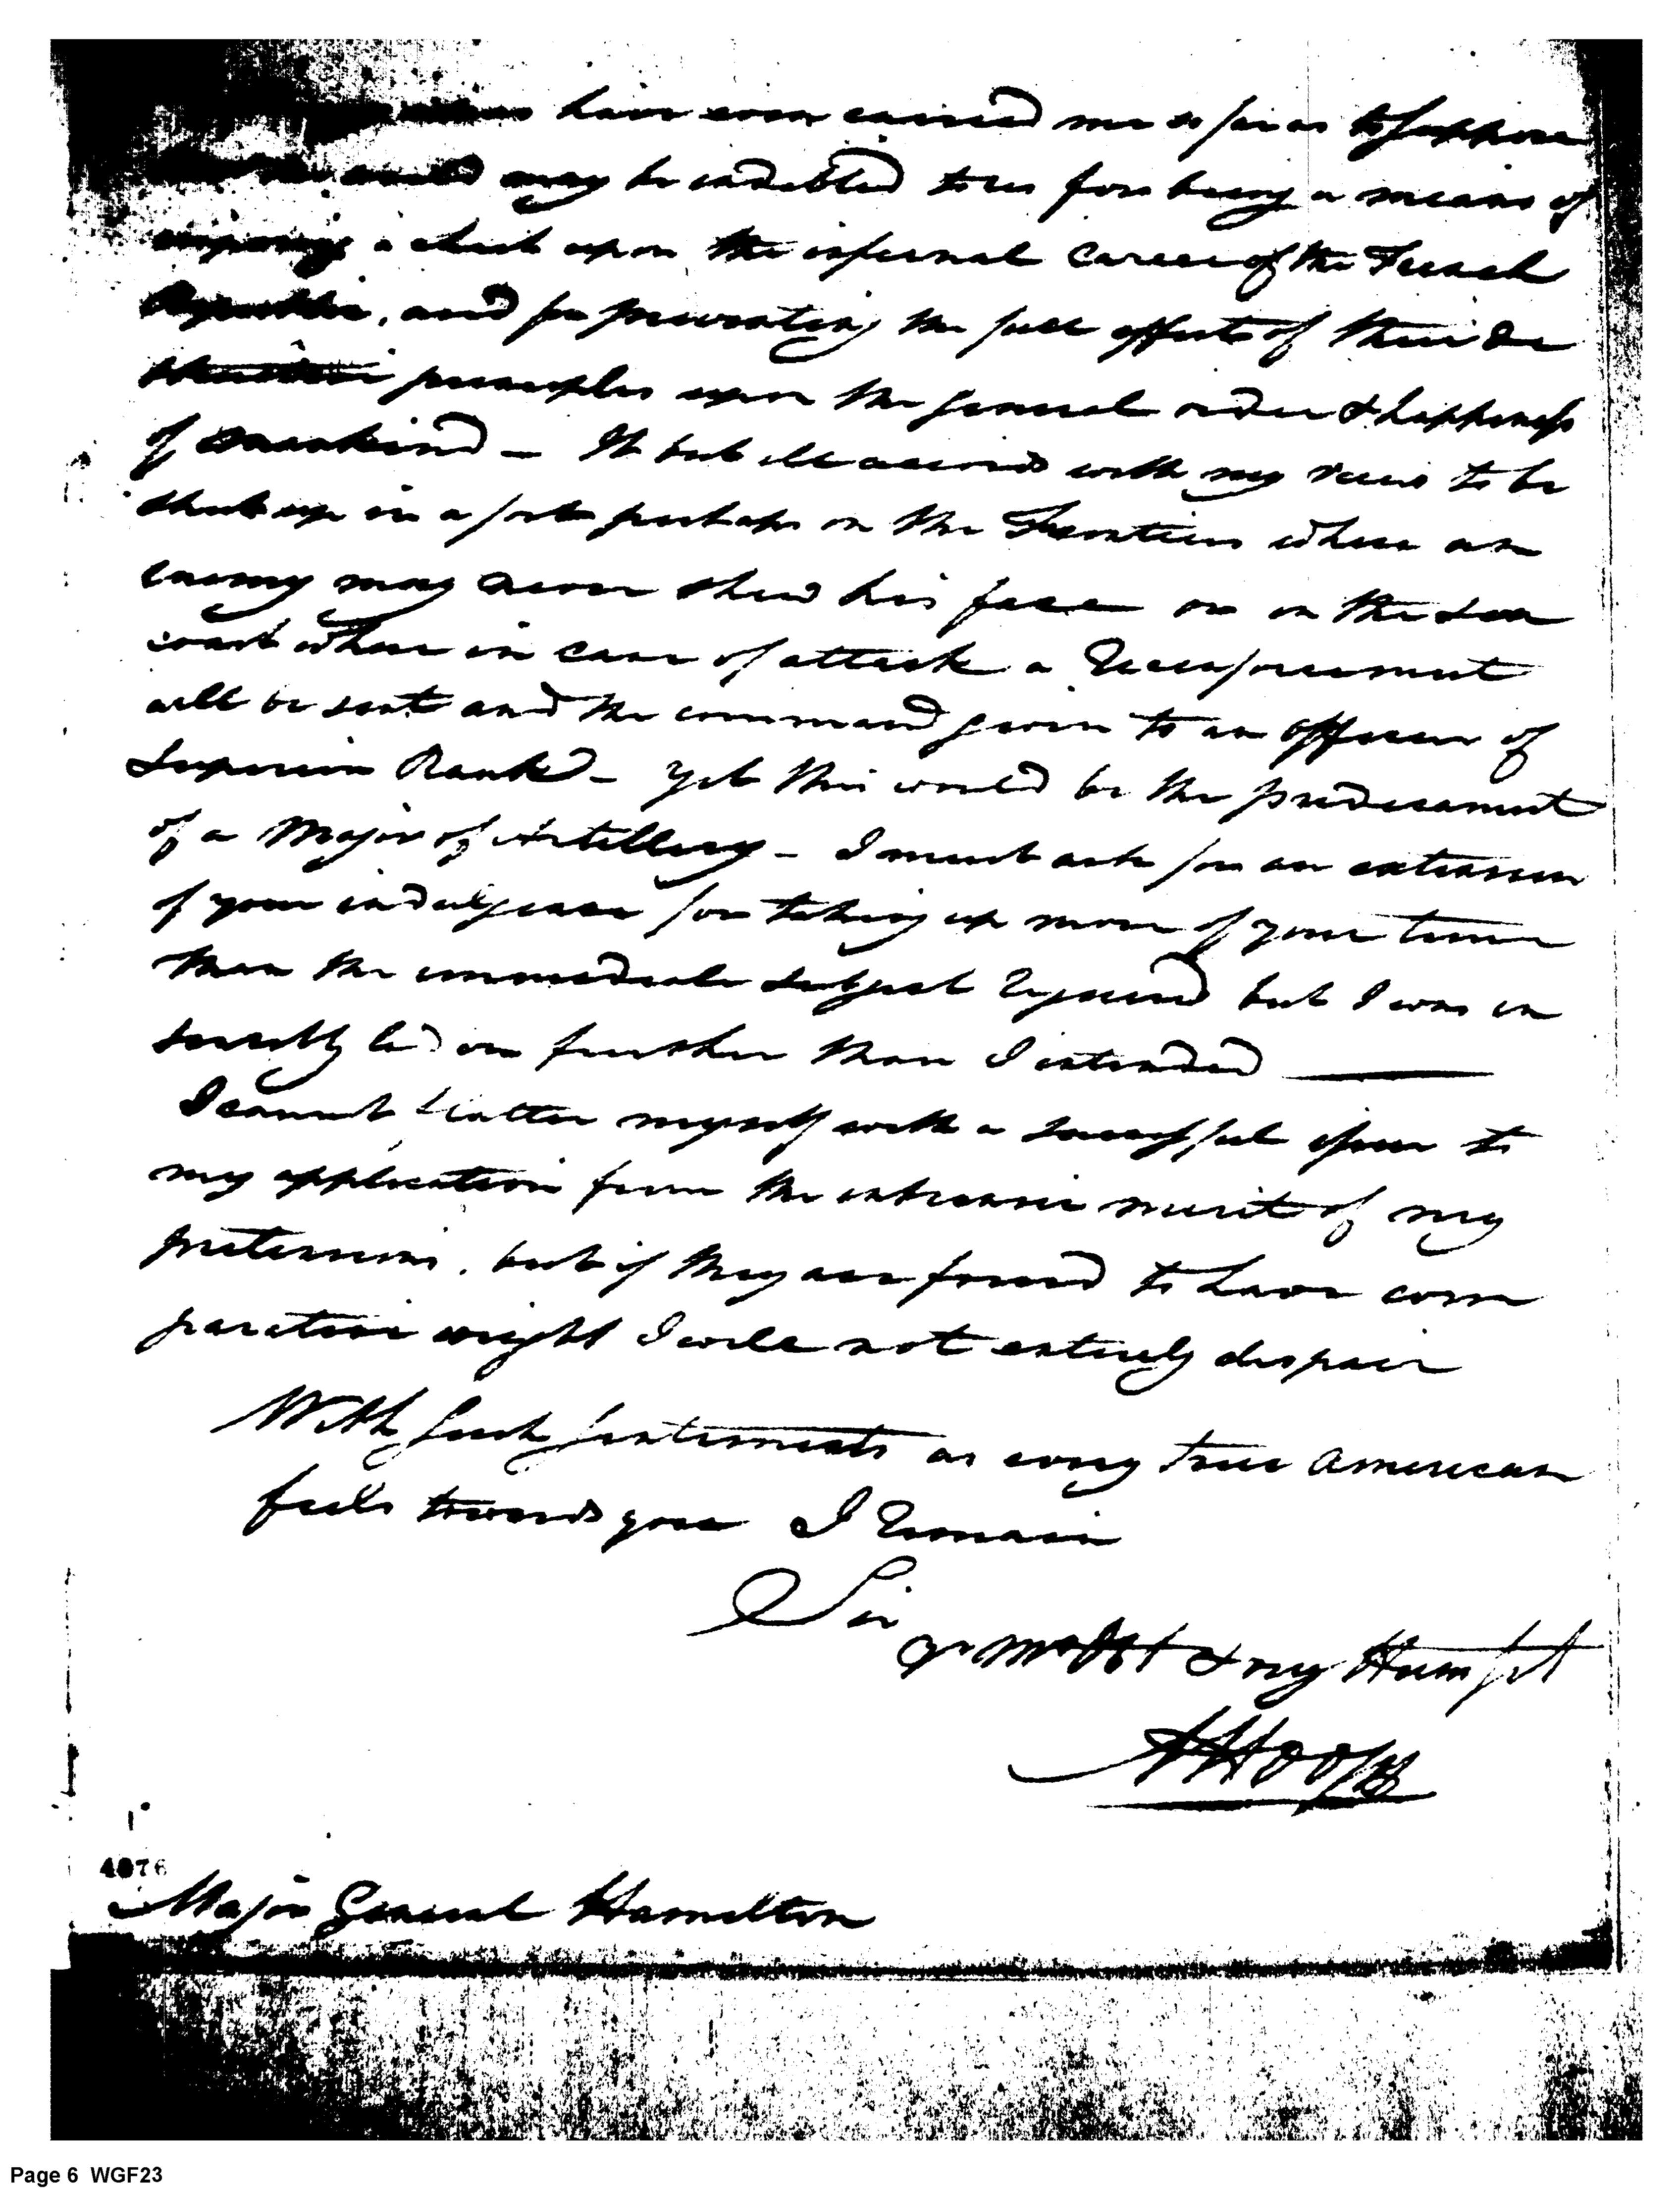 have even carried me so far as to suppose
may be indebted to us for being a means of
imposing a check upon the infernal Career of the French
Republic, and for preventing the full effects of their de
principles upon the general order & happiness
of mankind – It but ill accords with my views to be
shut up in a fort perhaps on the Frontiers where an
enemy may never shew his face or on the sea
coast where in case of attack a Reenforcement
will be sent and the command given to an officer of
Superior Rank – yet this would be the predicament
of a Major of Artillery – I must ask for an extension
of your indulgence for taking up more of your time
than the immediate subject required but I was in
sensibly led on further than I intended
I cannot flatter myself with a successful issue to
my application from the intrinsic merit of my
pretensions, but if they are found to have com
parative weight I will not entirely despair
With such sentiments as every true American
feels towards you I Remain
Sir
Yr Mo Obt & Very Humb St
A Hoops
4076
Major General Hamilton
Page 6 WGF23